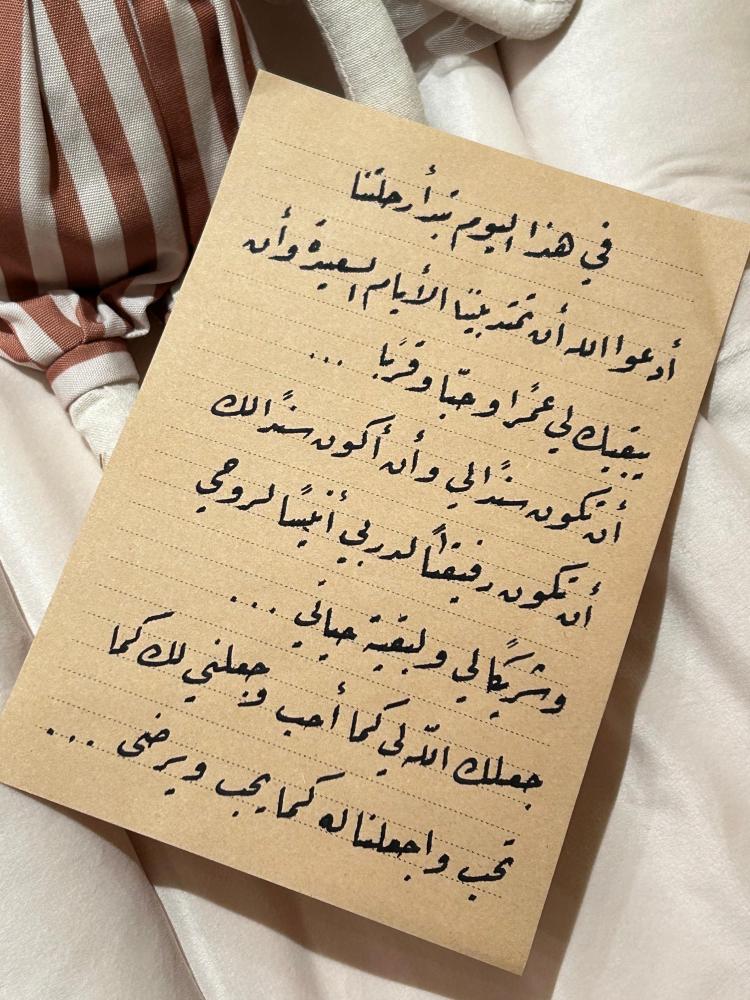 في هذا اليوم تبدأ رحلتنا
أدعوا الله أن تمتد بيننا الأيام السعيدة وأن
يبقيك لي عمرًا و حبًا وقربًا ...
أن تكون سندًا لي وأن أكون سندًا لك
أن تكون رفيقًا لدربي أنيسًا لروحي
وشريكًا لي ولبقية حياتي ...
جعلك اللّه لي كما أحب وجعلني لك كما
تحب واجعلنا له كما يحب ويرضى ...